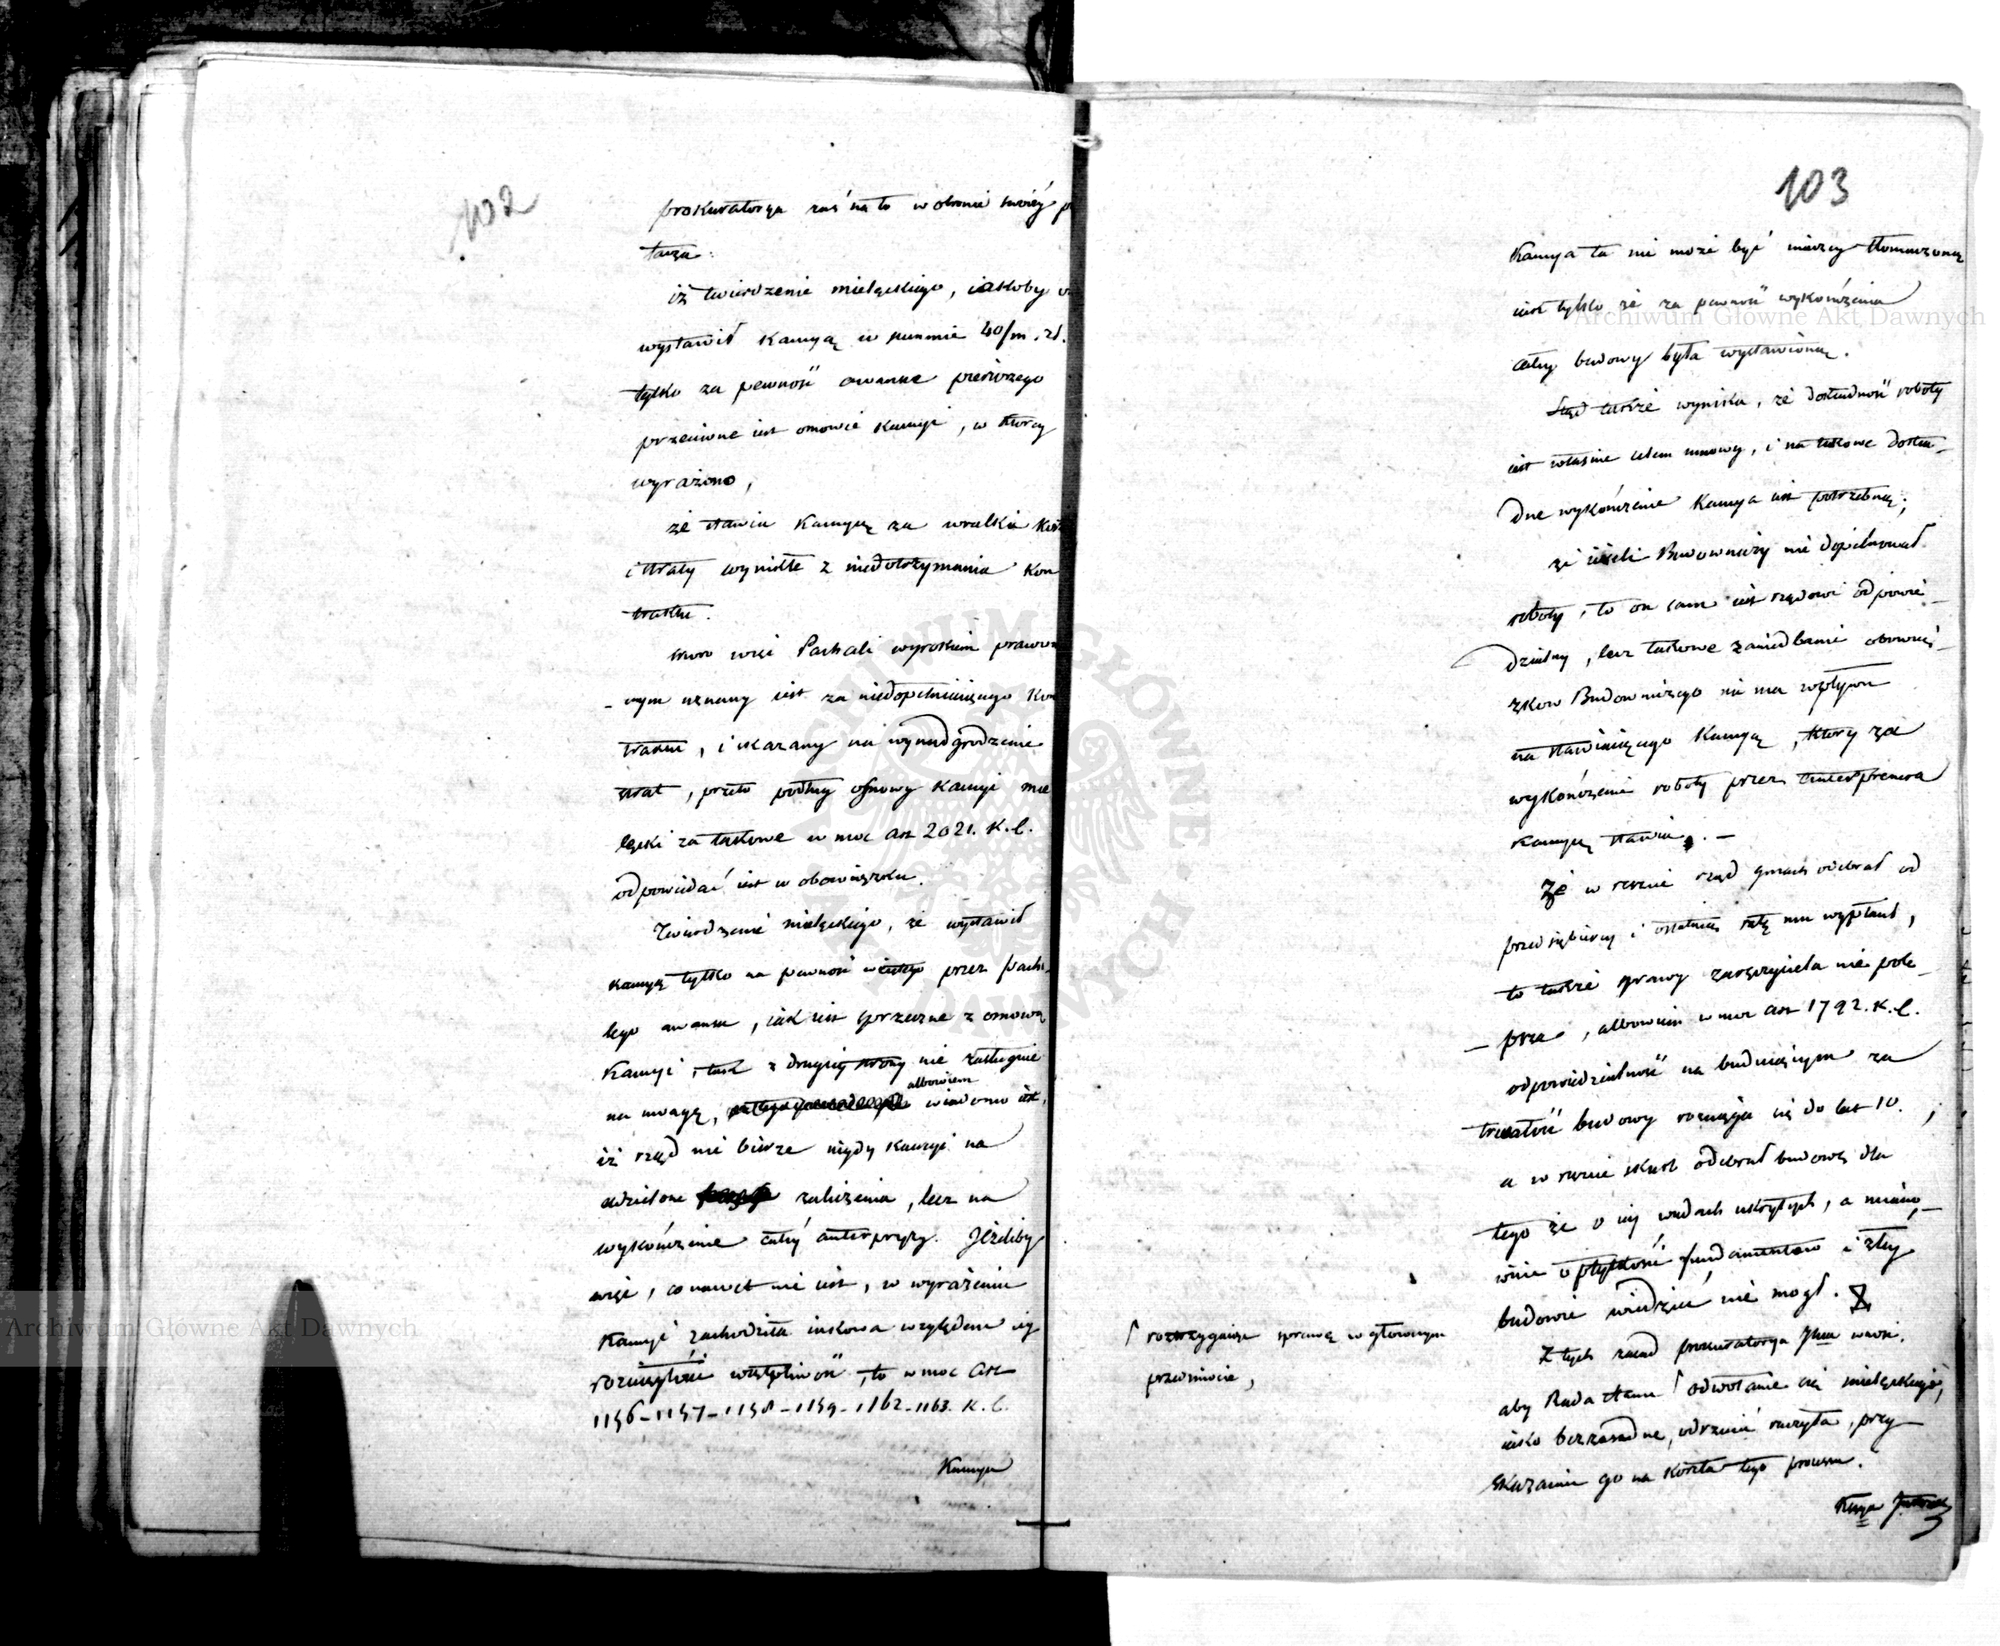 102
prokuratorya zaś na to w obronie swoiéy
twrza:
iż twierdzenie Mielęckiego, iakoby
wystawił Kaucyą w summie 40/m. zł.
tylko za pewność awansu pierwszego
przeciwne iest osnowie Kaucyi, w którcy
wyrażono,
że stawia Kaucyą za wszelkie
i straty wynikłe z niedotrzymania Kon
traktu.
skoro więc Paschali wyrokiem prawo
mym uznany iest za niedopełniaiącego Kon
traktu, i skazany na wynadgrodzenie
strat, przeto podług osnowy Kaucyi Mie
lęcki za takowe w moc art 2021. K.C.
odpowiadać iest w obowiązku.
Twierdzenie Mielęckiego, że wystawił
Kaucyą tylko na pewność wziętego przez Pascha
lego awansu, iak iest sprzeczne z osnową
Kaucyi, tak z drugiéy strony nie zasługuie
na uwagę, albowiem wiadomo iest,
iż rząd nie bierze nigdy Kaucyi na
udzielone zaliczenia, lecz na
wykończenie całéy anterpryzy. Jeżeliby
więc, co nawet nie iest, w wyrażeniu
Kaucyi zachodziła iakowa względem iey
rozciągłości wątpliwość, to w moc Art
1156-1157-1158-1159-1162-1163. K.C.
Kaucya
103
Kaucya ta nie może być inaczey tłomaczoną
iest tylko że za pewność wykończenia
całey budowy była wystawioną.
Stąd także wynika, że dokładność roboty
iest właśnie celem umowy, i na takowe dokła-
dne wykończenie Kaucya iest potrzebną;
że ieżeli Budowniczy nie dopilnował
roboty, to on sam iest rządowi odpowie-
dzialny, lecz takowe zaniedbanie obowią-
zkow Budowniczego nie ma wpływu
na stawiaiącego Kaucyą, który za
wykończenie roboty przez Enterprenera
Kaucyą stawia. -
Że w reszcie rząd gmach odebrał od
przedsiębiercy i ostatnią ratę mu wypłacił,
to także sprawy zaręczyciela nie pole-
- psza, albowiem w moc art 1792. K.C.
odpowiedzialność na buduiącym za
trwałość budowy rozciąga się do lat 10.;
a w reszcie skarb odebrał budowę dla
tego że o iey wadach ukrytych, a miano-
wicie o płytkości fundamentow i złey
budowie wiedzieć nie mogł.
Z tych zasad prokuratorya Jlna wnosi,
aby Rada Stanu odwołanie się Mielęckiego,
iako bezzasadne, odrzucić raczyła, przy
skazaniu go na koszta tego processu.
rozstrzygaiąc sprawę w głownym
przedmiocie,